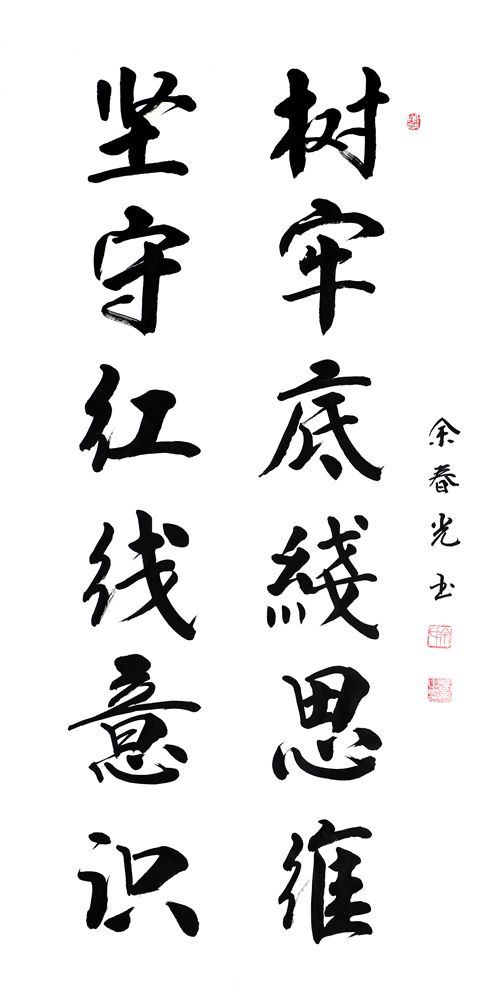 树牢底綫思维
坚守红线意识
余春光书